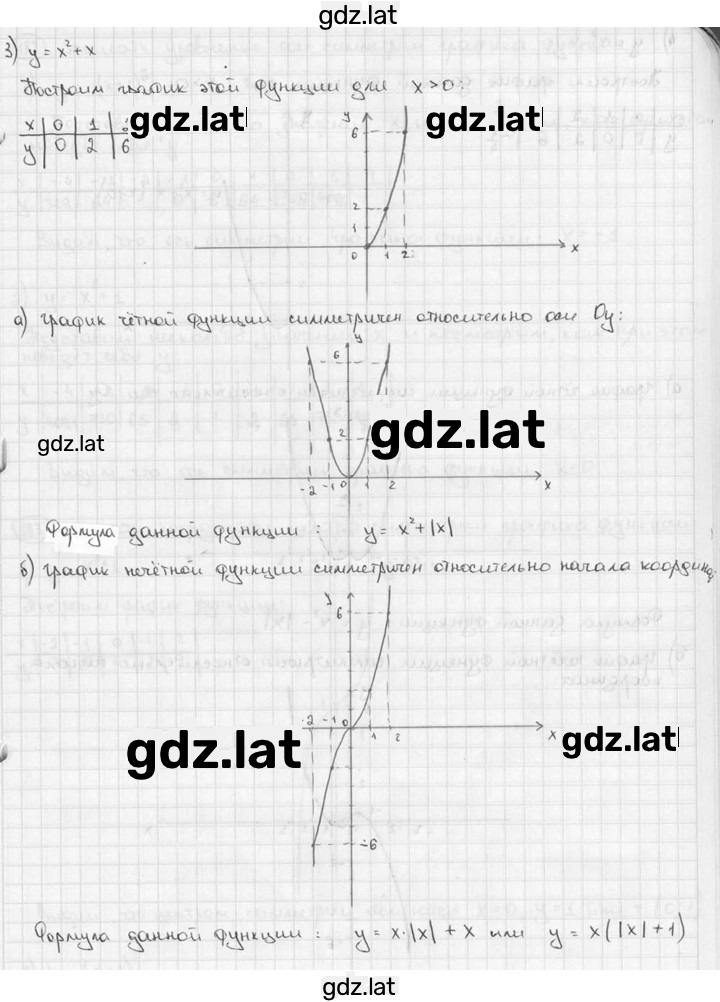 gdz.lat
3) y = x² + x
Построим график этой функции для x > 0:
x | 0 | 1 |
y | 0 | 2 | 6
gdz.lat
gdz.lat
y
6
2
1
0 1 2
x
а) график чётной функции симметричен относительно оси Oy:
y
6
2
-2 -1 0 1 2
x
gdz.lat
gdz.lat
Формула данной функции : y = x² + |x|
б) график нечётной функции симметричен относительно начала координат
y
6
-2 -1 0 1 2
x
-6
gdz.lat
gdz.lat
Формула данной функции : y = x·|x| + x или y = x(|x| + 1)
gdz.lat